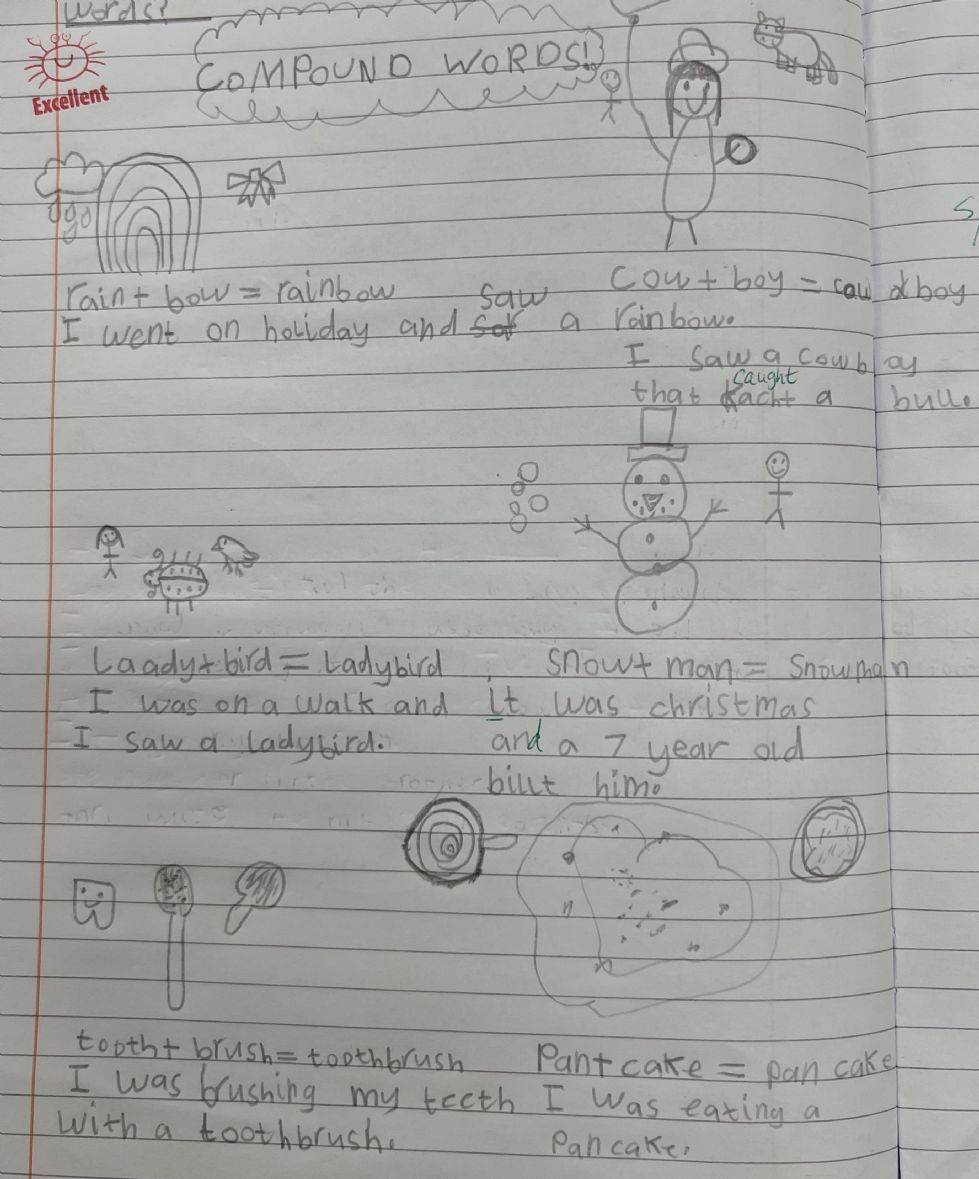 words!
Excellent
COMPOUND WORDS!
rain + bow = rainbow
I went on holiday and saw a rainbow.
cow + boy = cow boy
I saw a cowboy
that caught kacht a bull.
Laady + bird = Ladybird
I was on a walk and
I saw a ladybird.
snow + man = snowman
It was christmas
and a 7 year old
biult him.
tooth + brush = toothbrush
I was brushing my teeth
with a toothbrush.
Pan + cake = pan cake
I was eating a
Pancake.